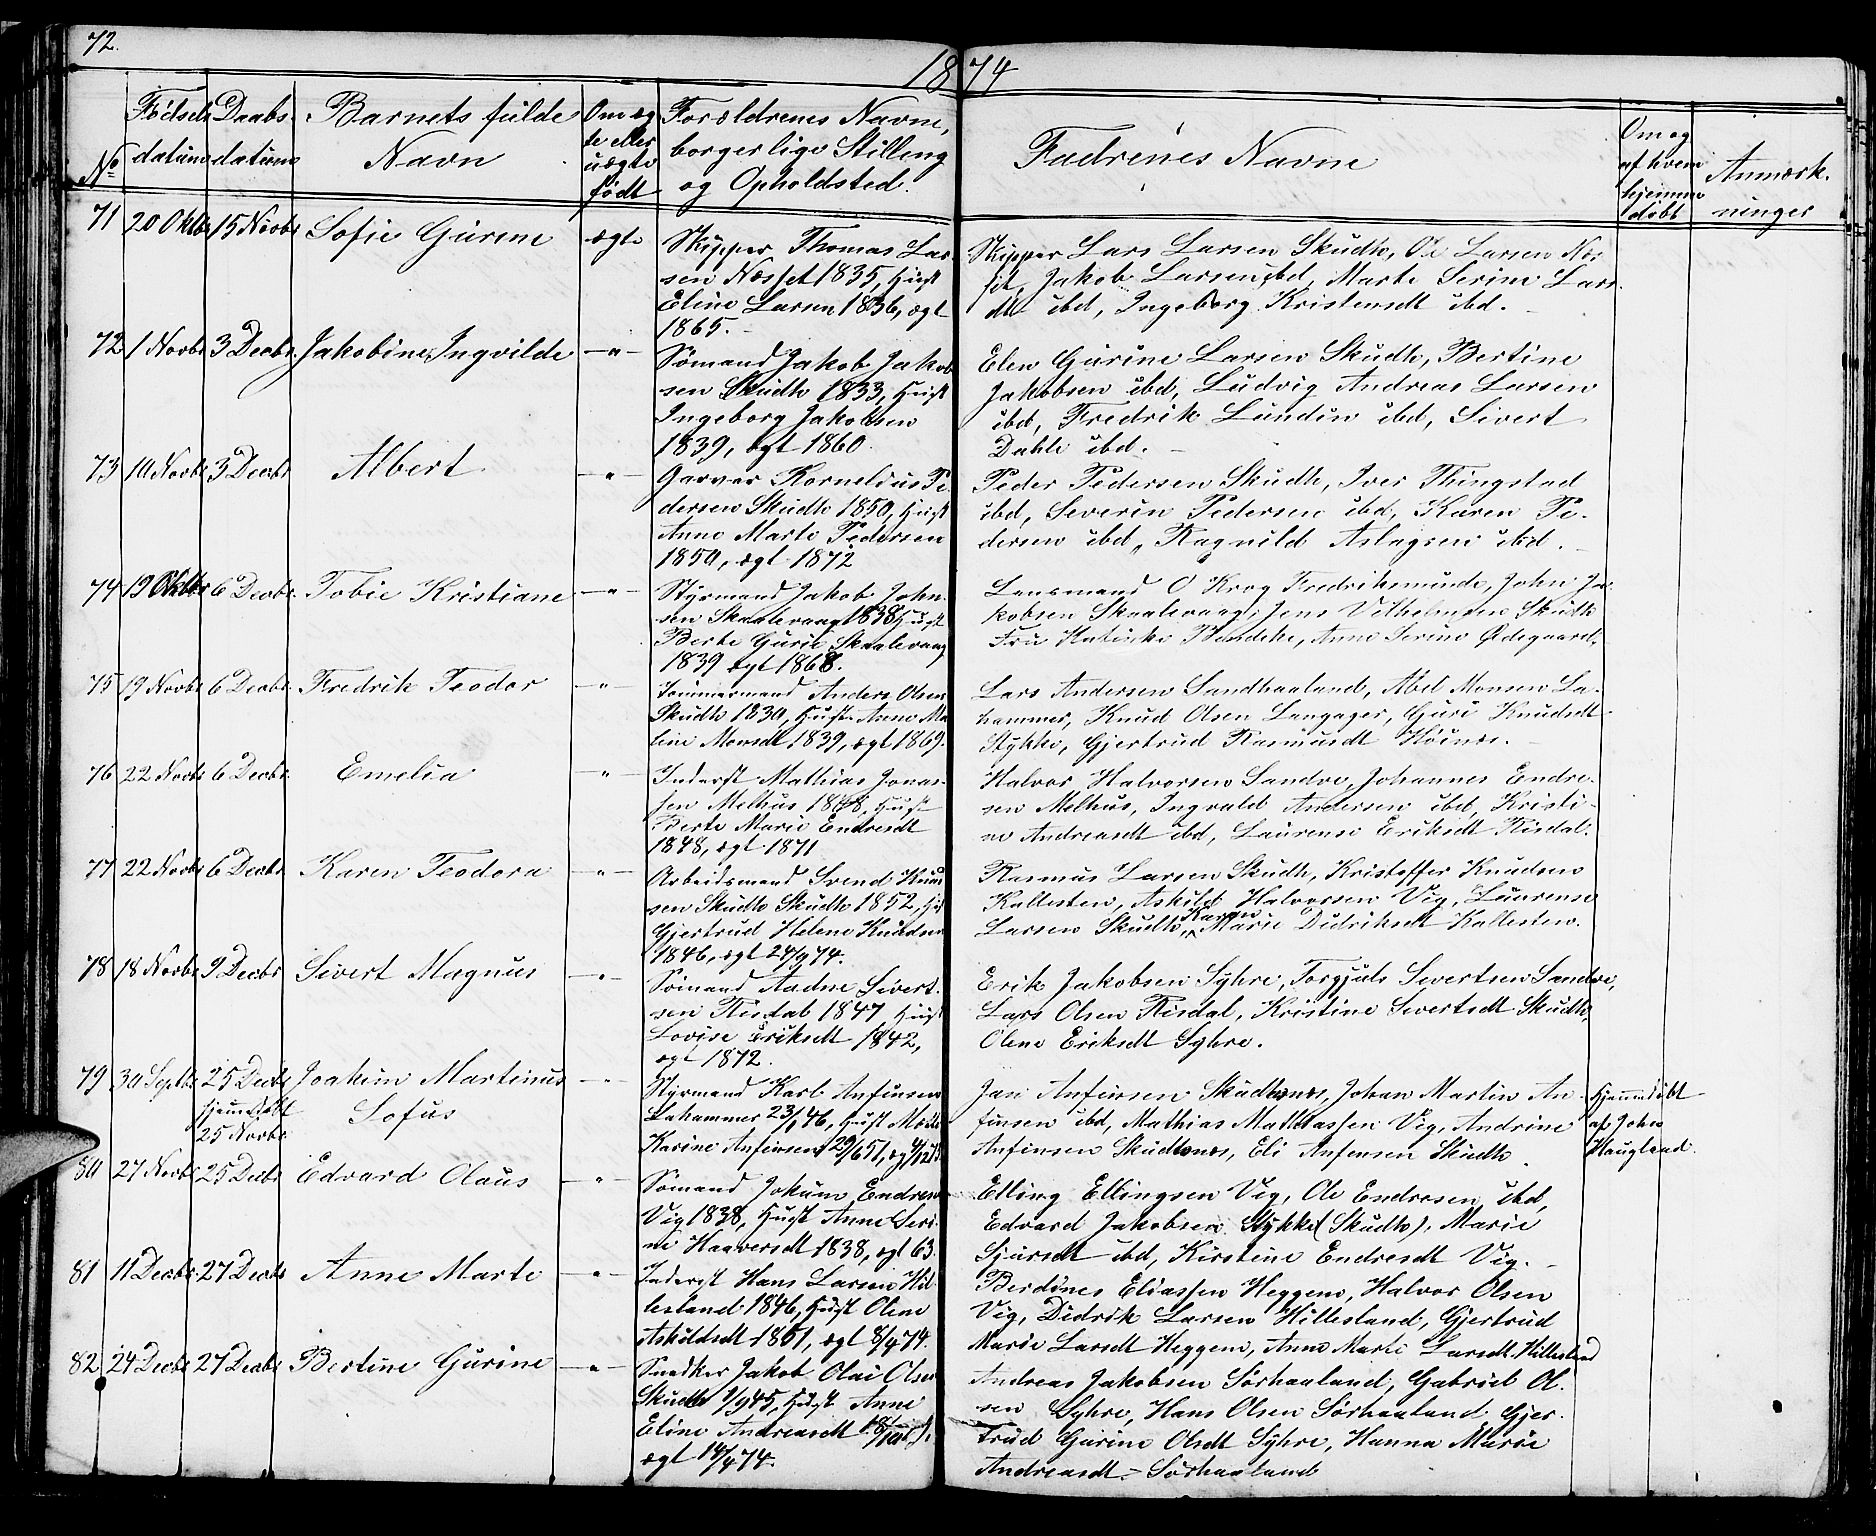 72.
1874
No
Fødsels
datum
Daabs
datum
Barnets fulde
Navn
Om æg
te eller
uægte
født
Forældrenes Navne,
borgerlige Stilling
og Opholdsted.
Fadrenes Navne
Om og
af hvem
hjemme
døbt
Anmærk.
ninger
71 20 Oktbr 15 Novbr Sofie Gurine ægte
Skipper Thomas Lar
sen Næsset 1835, Hust
Eline Larsen 1836, ægt
1865.
Skipper Lars Larsen Skudh, Ole Larsen Næs
set, Jakob Larsen ibd, Marte Serine Lars
dt ibd, Ingeborg Kristensdt ibd.
72 1 Novbr 3 Decbr Jakobine Ingvilde —"—
Sømand Jakob Jakob
sen Skudh 1833, Hust
Ingeborg Jakobsen
1839, ægt 1860.
Elen Gurine Larsen Skudh, Bertine
Jakobsen ibd, Ludvig Andreas Larsen
ibd, Fredrik Lundin ibd, Sivert
Dahle ibd.
73 10 Novbr 3 Decbr Albert —"—
Garver Kornelius Pe
dersen Skudh 1850, Hust
Anne Marte Pedersen
1850, ægt 1872
Peder Pedersen Skudh, Iver Thingstad
ibd, Severin Pedersen ibd, Karen Pe-
dersen ibd, Ragnild Aslagsen ibd.
74 19 Oktbr 6 Decbr Tobie Kristiane —"—
Styrmand Jakob John
sen Skaalevaag 1838 Hust
Berte Gurie Skaalevaag
1839 ægt 1868.
Lensmand O Krog Fredriksminde, John Ja-
kobsen Skaalevaag, Jens Vilhelmsen Skudh
Fru Katinka Bendeke, Anne Serine Ødegaard.
75 19 Novbr 6 Decbr Fredrik Teodor —"—
Tømmermand Anders Olsen
Skudh 1830, Hust. Anne Ma
line Monsdt 1839, ægt 1869.
Lars Andersen Sandhaaland, Abel Monsen La-
hammer, Knud Olsen Langager, Guri Knudsdt
Stykke, Gjertrud Rasmusdt Høines.
76 22 Novbr 6 Decbr Emelia —"—
Inderst Mathias Jonas-
sen Melhus 1848, Hust
Berte Marie Endresdt
1848, ægt 1871
Halvor Halvorsen Sandve, Johannes Endre-
sen Melhus, Ingvald Andersen ibd, Kristi-
ne Andreasdt ibd, Laurense Eriksdt Risdal.
77 22 Novbr 6 Decbr Karen Teodora —"—
Arbeidsmand Svend Knud
sen Skudh Skudh 1852, Hst
Gjertrud Helene Knudsen
1846, ægt 24/9 74.
Rasmus Larsen Skudh, Kristoffer Knudsen
Kallesten, Askild Halvorsen Vig, Laurense
Larsen Skudh, Karen Marie Didriksdt Kallesten.
78 18 Novbr 9 Decbr Sivert Magnus —"—
Sømand Aadne Sivert-
sen Risdal 1847 Hust
Lovise Eriksdt 1842,
ægt 1872.
Erik Jakobsen Syhre, Torgjuls Sivertsen Sandve,
Lars Olsen Risdal, Kristine Sivertsdt Skudh,
Olene Eriksdt Syhre.
79 30 Septbr 25 Decbr Joakim Martinus —"—
hjemdøbt
25 Novbr
Sofus
Styrmand Karl Anfinsen
Lahammer 23/1 46, Hust Marte
Karine Anfinsen 29/6 51, ægt
Jan Anfinsen Skudesnæs, Johan Martin An-
finsen ibd, Mathias Mathiassen Vig, Andrine
Anfinsen Skudesnæs, Eli Anfensen Skudh
Hjemmedøbt
af John
Haugland.
80 27 Novbr 25 Decbr Edvard Olaus —"—
Sømand Jokum Endresen
Vig 1838, Hust Anne Seri-
ne Haaversdt 1838, ægt 63.
Elling Ellingsen Vig, Ole Endresen ibd,
Edvard Jakobsen Stykke (Skudh), Marie
Sjursdt ibd, Kirstine Endresdt Vig.
81 11 Decbr 27 Decbr Anne Marte —"—
Inderst Hans Larsen Hil-
lesland 1846, Hust Oline
Askildsdt 1851, ægt 8/4 74.
Berdines Eliassen Heggem, Halvor Olsen
Vig, Didrik Larsen Hillesland, Gjertrud
Marie Larsdt Heggem, Anne Marte Larsdt Hillesland
82 24 Decbr 27 Decbr Bertine Gurine —"—
Snedker Jakob Olai Olsen
Skudh 1/9 45, Hust Anne
Eline Andreasdt
ægt 14/4 74.
Andreas Jakobsen Sørhaaland, Gabriel Ol-
sen Syhre, Hans Olsen Sørhaaland, Gjer-
trud Gurine Olsdt Syhre, Hanna Marie
Andreasdt Sørhaaland